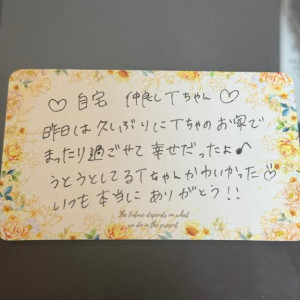 ♡ 自宅 仲良しTちゃん ♡
昨日は久しぶりにTちゃのお家で
まったり過ごせて幸せだったよ♪
うとうとしてるTちゃんかわいかった♡
いつも本当にありがとう!!
The Future depends on what
we do in the present.